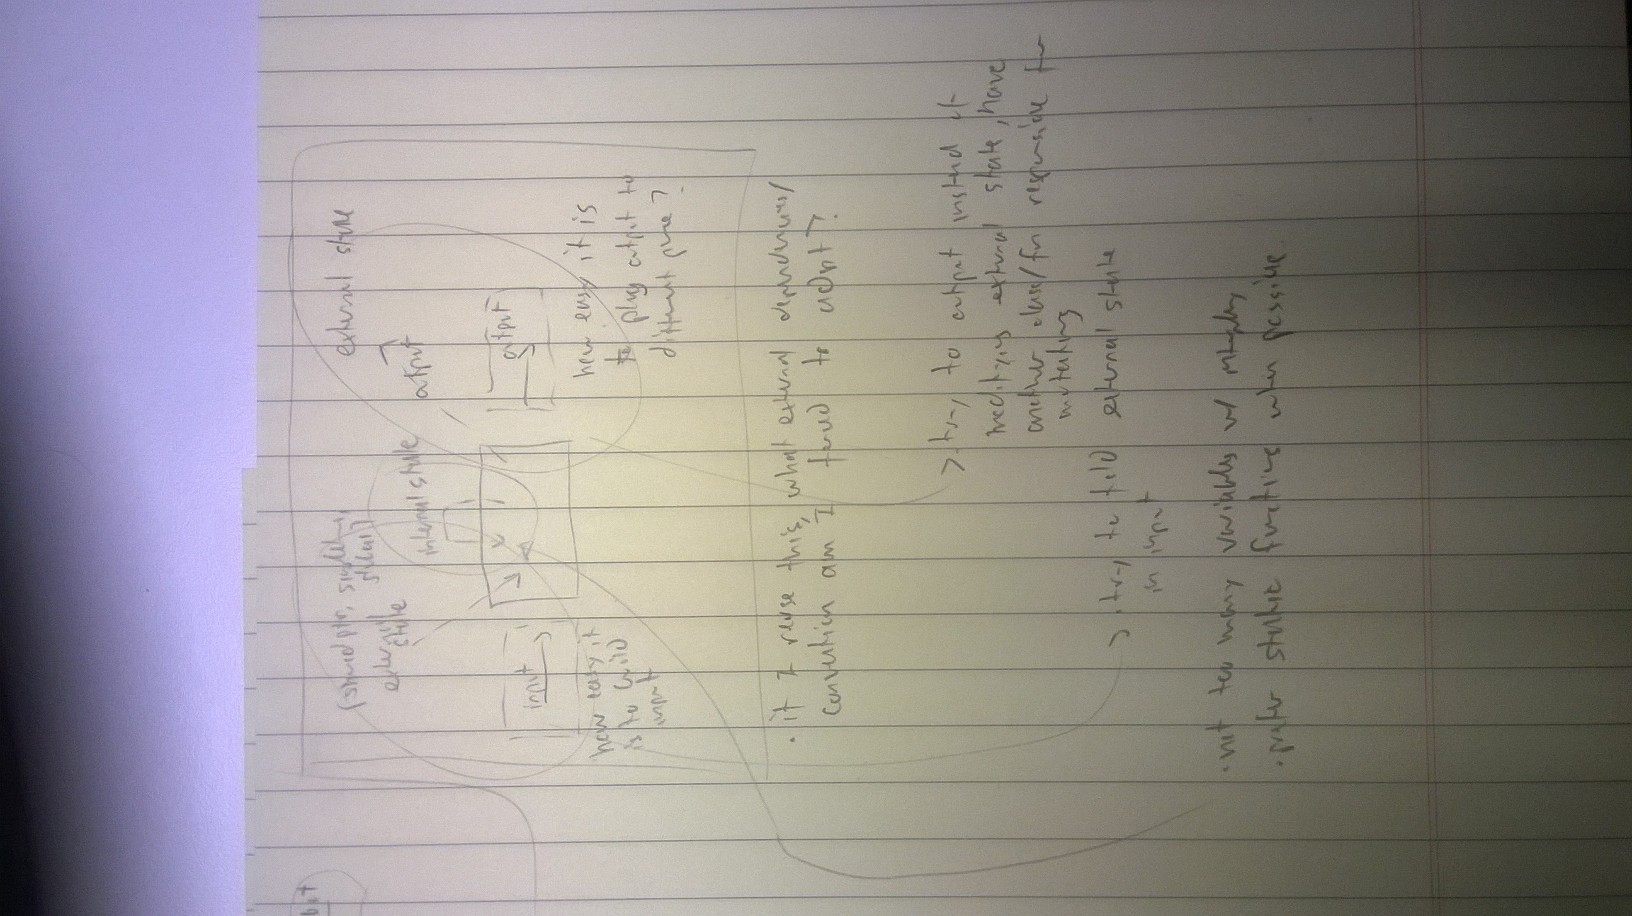 external state
(shared ptr, singleton,
external
state
internal state
output
input
output
how easy it
is to build
input
how easy it is
to plug output to
different place?
. if I reuse this, what external dependencies/
convention am I forced to adopt?
. try to output instead of
modifying external state, have
another class/fn responsible for
mutating
external state
. try to fold
in input
. not too many variables w/
. prefer static functions when possible